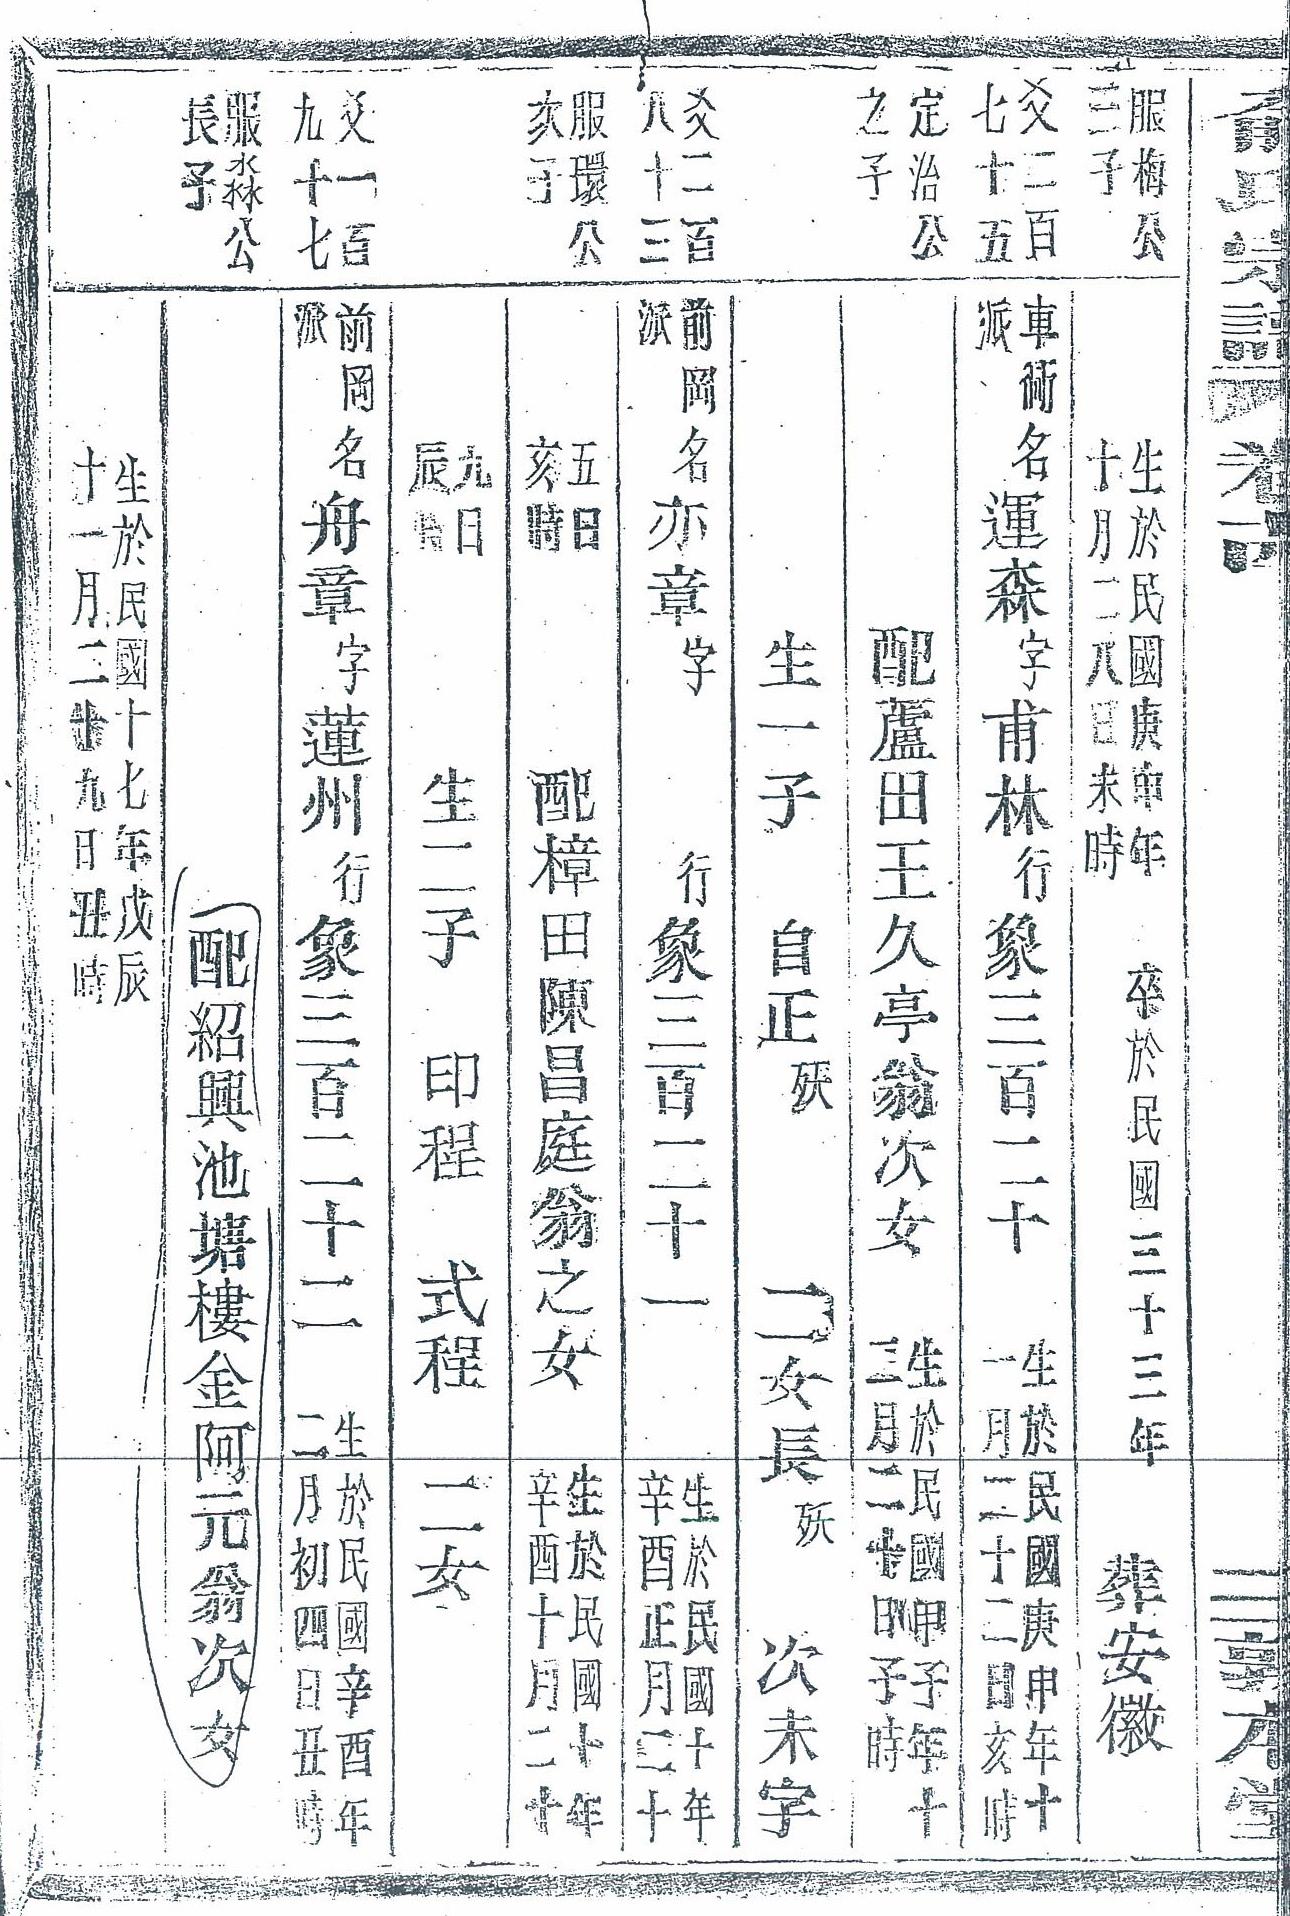 氏宗譜
卷
三
本堂
服梅公
三子
生於民國庚申年
十月二八日未時
卒於民國三十三年
葬安徽
爻二百
七十五
車衖名運森字甫林行象三百二十
派
生於民國庚申年十
一月二十二日亥時
定治公
之子
配蘆田王久亭翁次女
生於民國甲子年十
三月二十日子時
生一子 自正 殀 二女長 殀 次未字
爻二百
八十三
前岡名亦章字 行象三百二十一
派
生於民國十年
辛酉正月二十
五日
亥時
服環公
次子
配樟田陳昌庭翁之女
生於民國十年
辛酉十月二十
九日
辰時
生二子 印程 式程 二女
爻一百
九十七
前岡名舟章字蓮州行象三百二十二
派
生於民國辛酉年
二月初四日丑時
服淼公
長子
配紹興池塘樓金阿元翁次女
生於民國十七年戊辰
十一月二十九日丑時